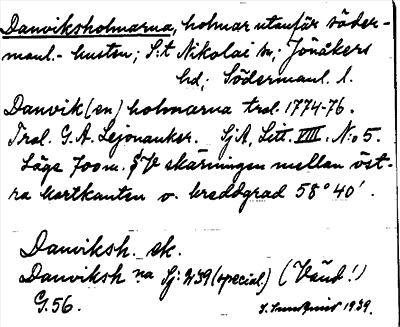 Danviksholmarna, holmar utanför söder-
manl.-kusten; S:t Nikolai sn; Jönåkers
hd; Södermanl. l.
Danvik(en) holmarna trol. 1774-76.
Trol. G. A. Lejonanker. SjA, Litt. VIII, N:o 5.
Läge 700 m. V skärningen mellan öst-
ra kartkanten o. breddgrad 58° 40'.
Danviksh. ek.
Danviksh na Sj: 239 (special.) (Vänd!)
G. 56.
1939.